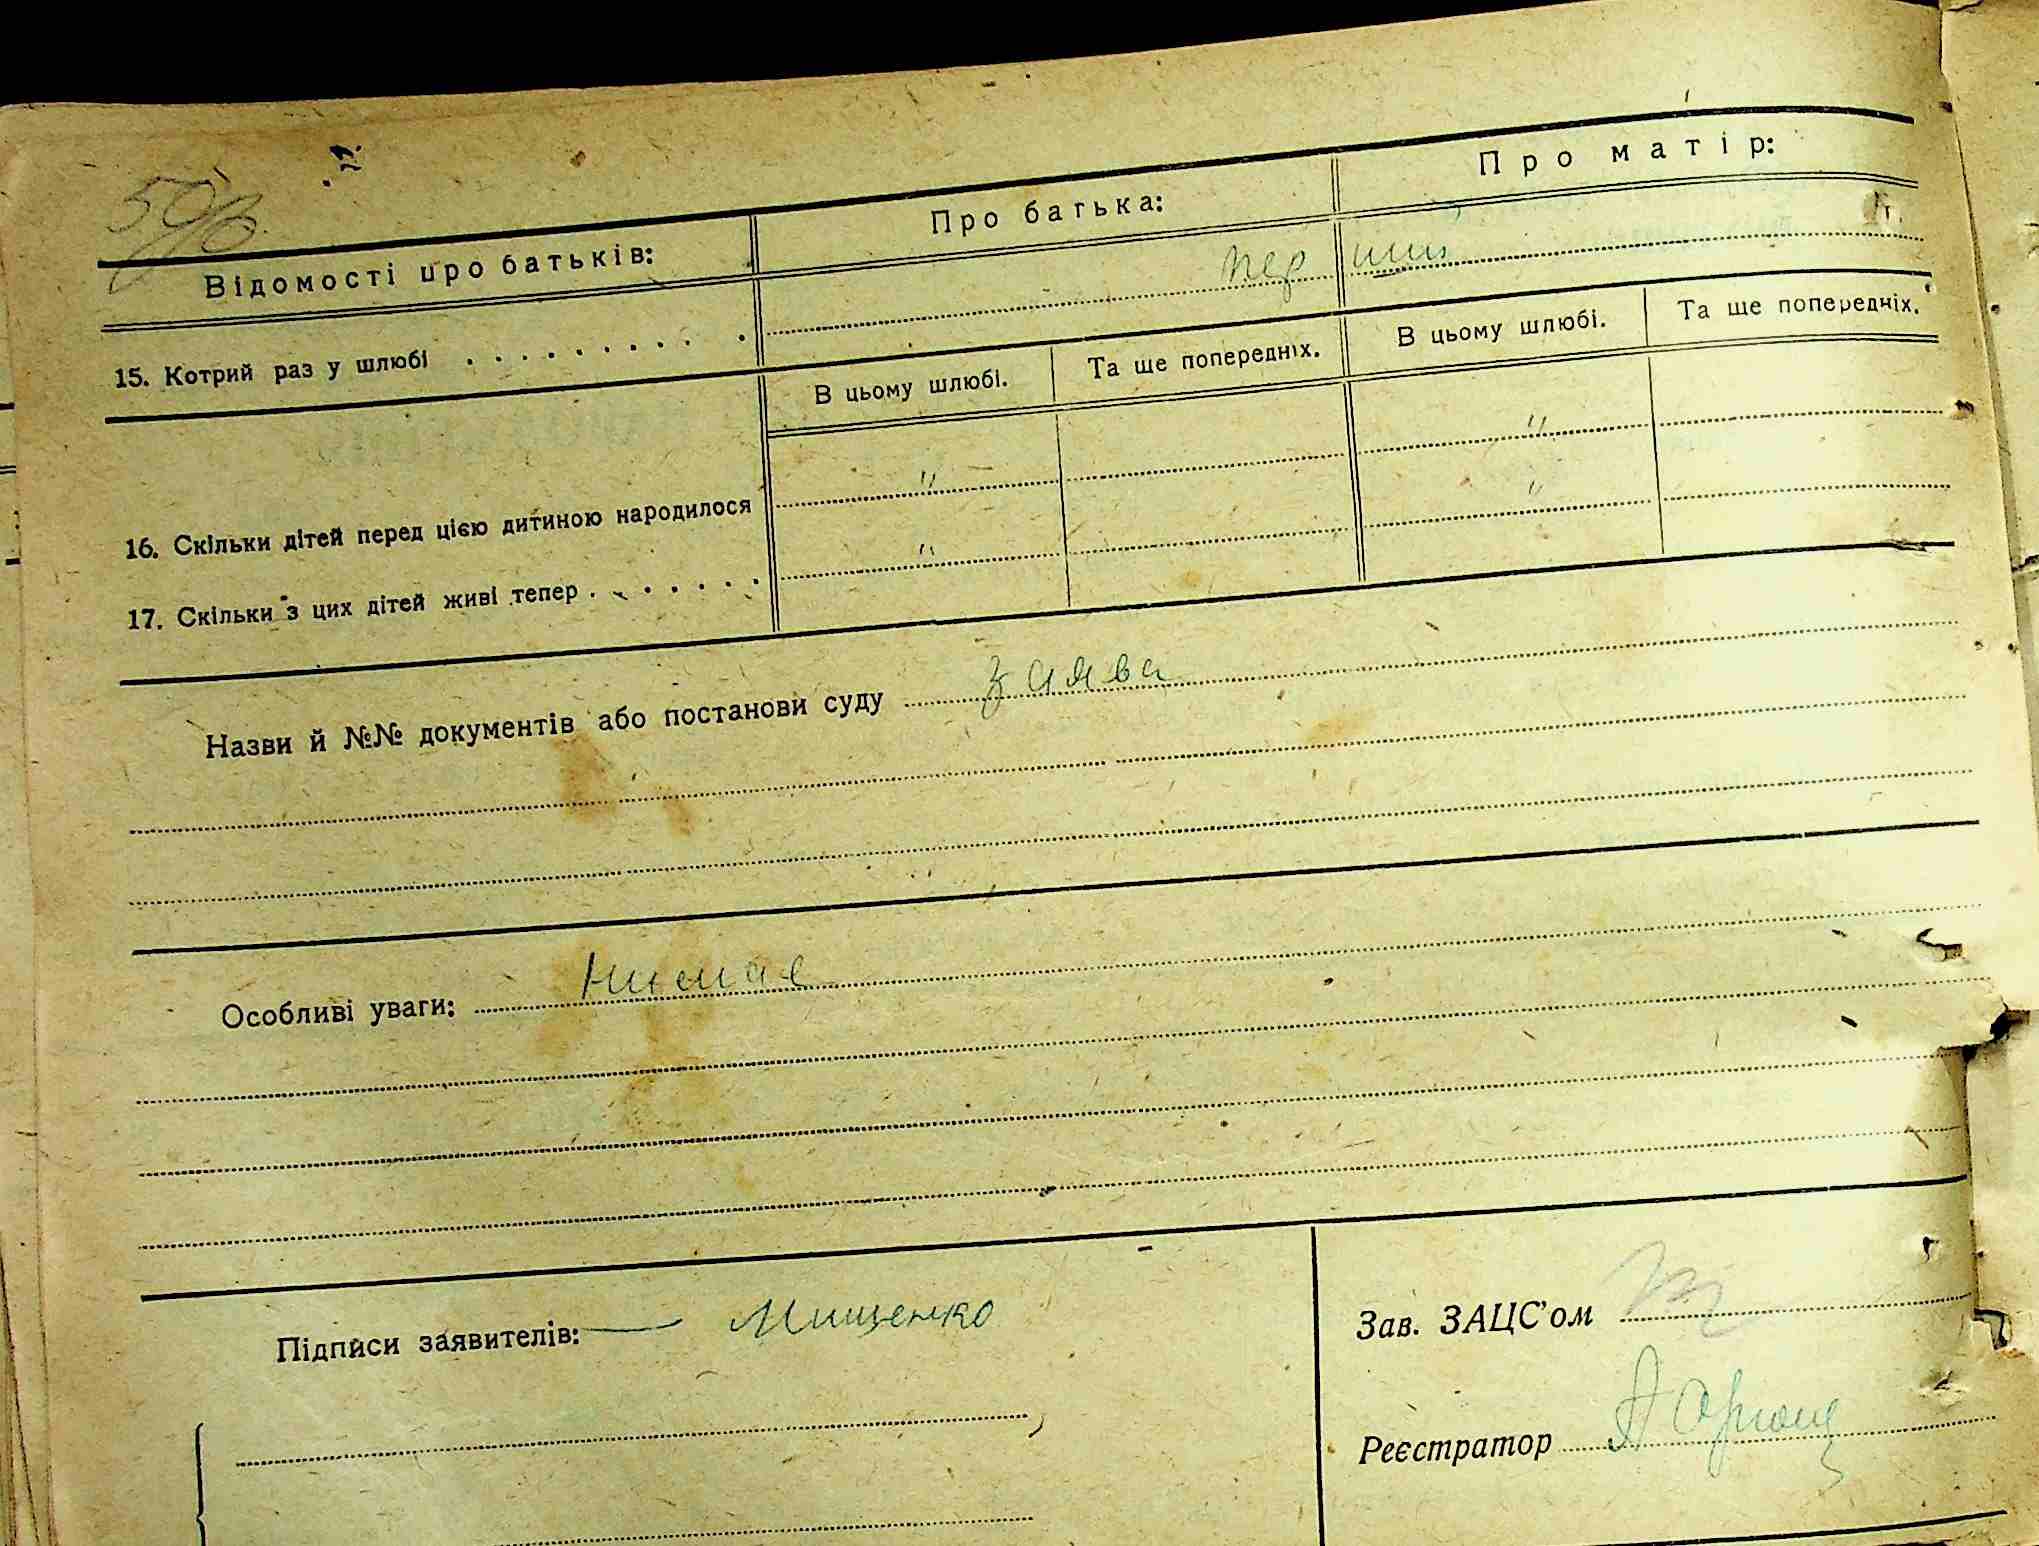 50/в
Відомості про батьків:
Про батька:
Про матір:
15. Котрий раз у шлюбі . . . . . . . . . .
перший
В цьому шлюбі.
Та ще попередніх.
В цьому шлюбі.
Та ще попередніх.
16. Скільки дітей перед цією дитиною народилося
" "
17. Скільки з цих дітей живі тепер . . . . . . .
" "
Назви й №№ документів або постанови суду заява
Особливі уваги: Нимає
Підписи заявителів: — Мищенко
Зав. ЗАЦС'ом
Реєстратор